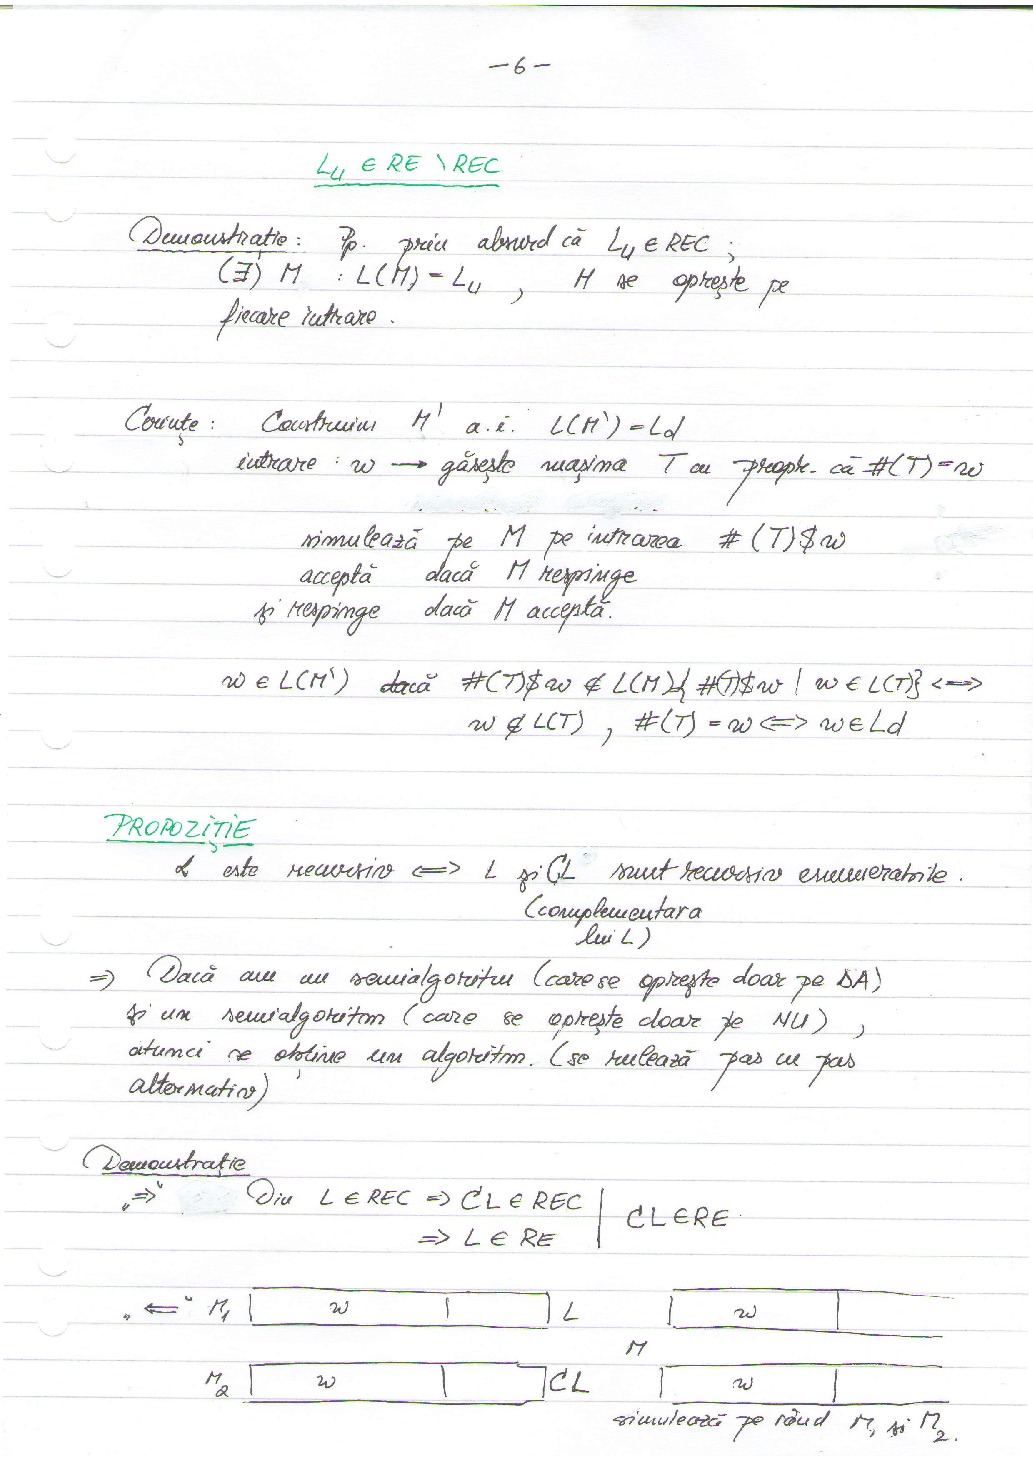 -6-
L_U ∈ RE \ REC
Demonstrație: Pp. prin absurd că L_U ∈ REC ;
(∃) M : L(M) = L_U , M se oprește pe
fiecare intrare .
Cerințe : Construim M' a.î. L(M') = Ld
intrare : w → găsește mașina T cu propr. că #(T) = w
simulează pe M pe intrarea #(T)$w
acceptă dacă M respinge
și respinge dacă M acceptă.
w ∈ L(M') dacă #(T)$w ∉ L(M) { #(T)$w | w ∈ L(T)} <=>
w ∉ L(T) , #(T) = w <=> w ∈ Ld
PROPOZIȚIE
L este recursiv <=> L și CL sunt recursiv enumerabile .
(complementara
lui L)
=> Dacă am un semialgoritm (care se oprește doar pe DA)
și un semialgoritm (care se oprește doar pe NU) ,
atunci se obține un algoritm. (se rulează pas cu pas
alternativ)
Demonstrație
„=>" Din L ∈ REC => CL ∈ REC | CL ∈ RE
=> L ∈ RE
„<=" M1 w L w
M
M2 w CL w
simulează pe rând M1 și M2.